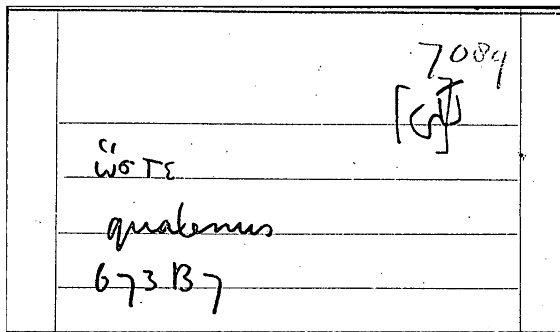 7089
ὥστε
quatenus
673B7